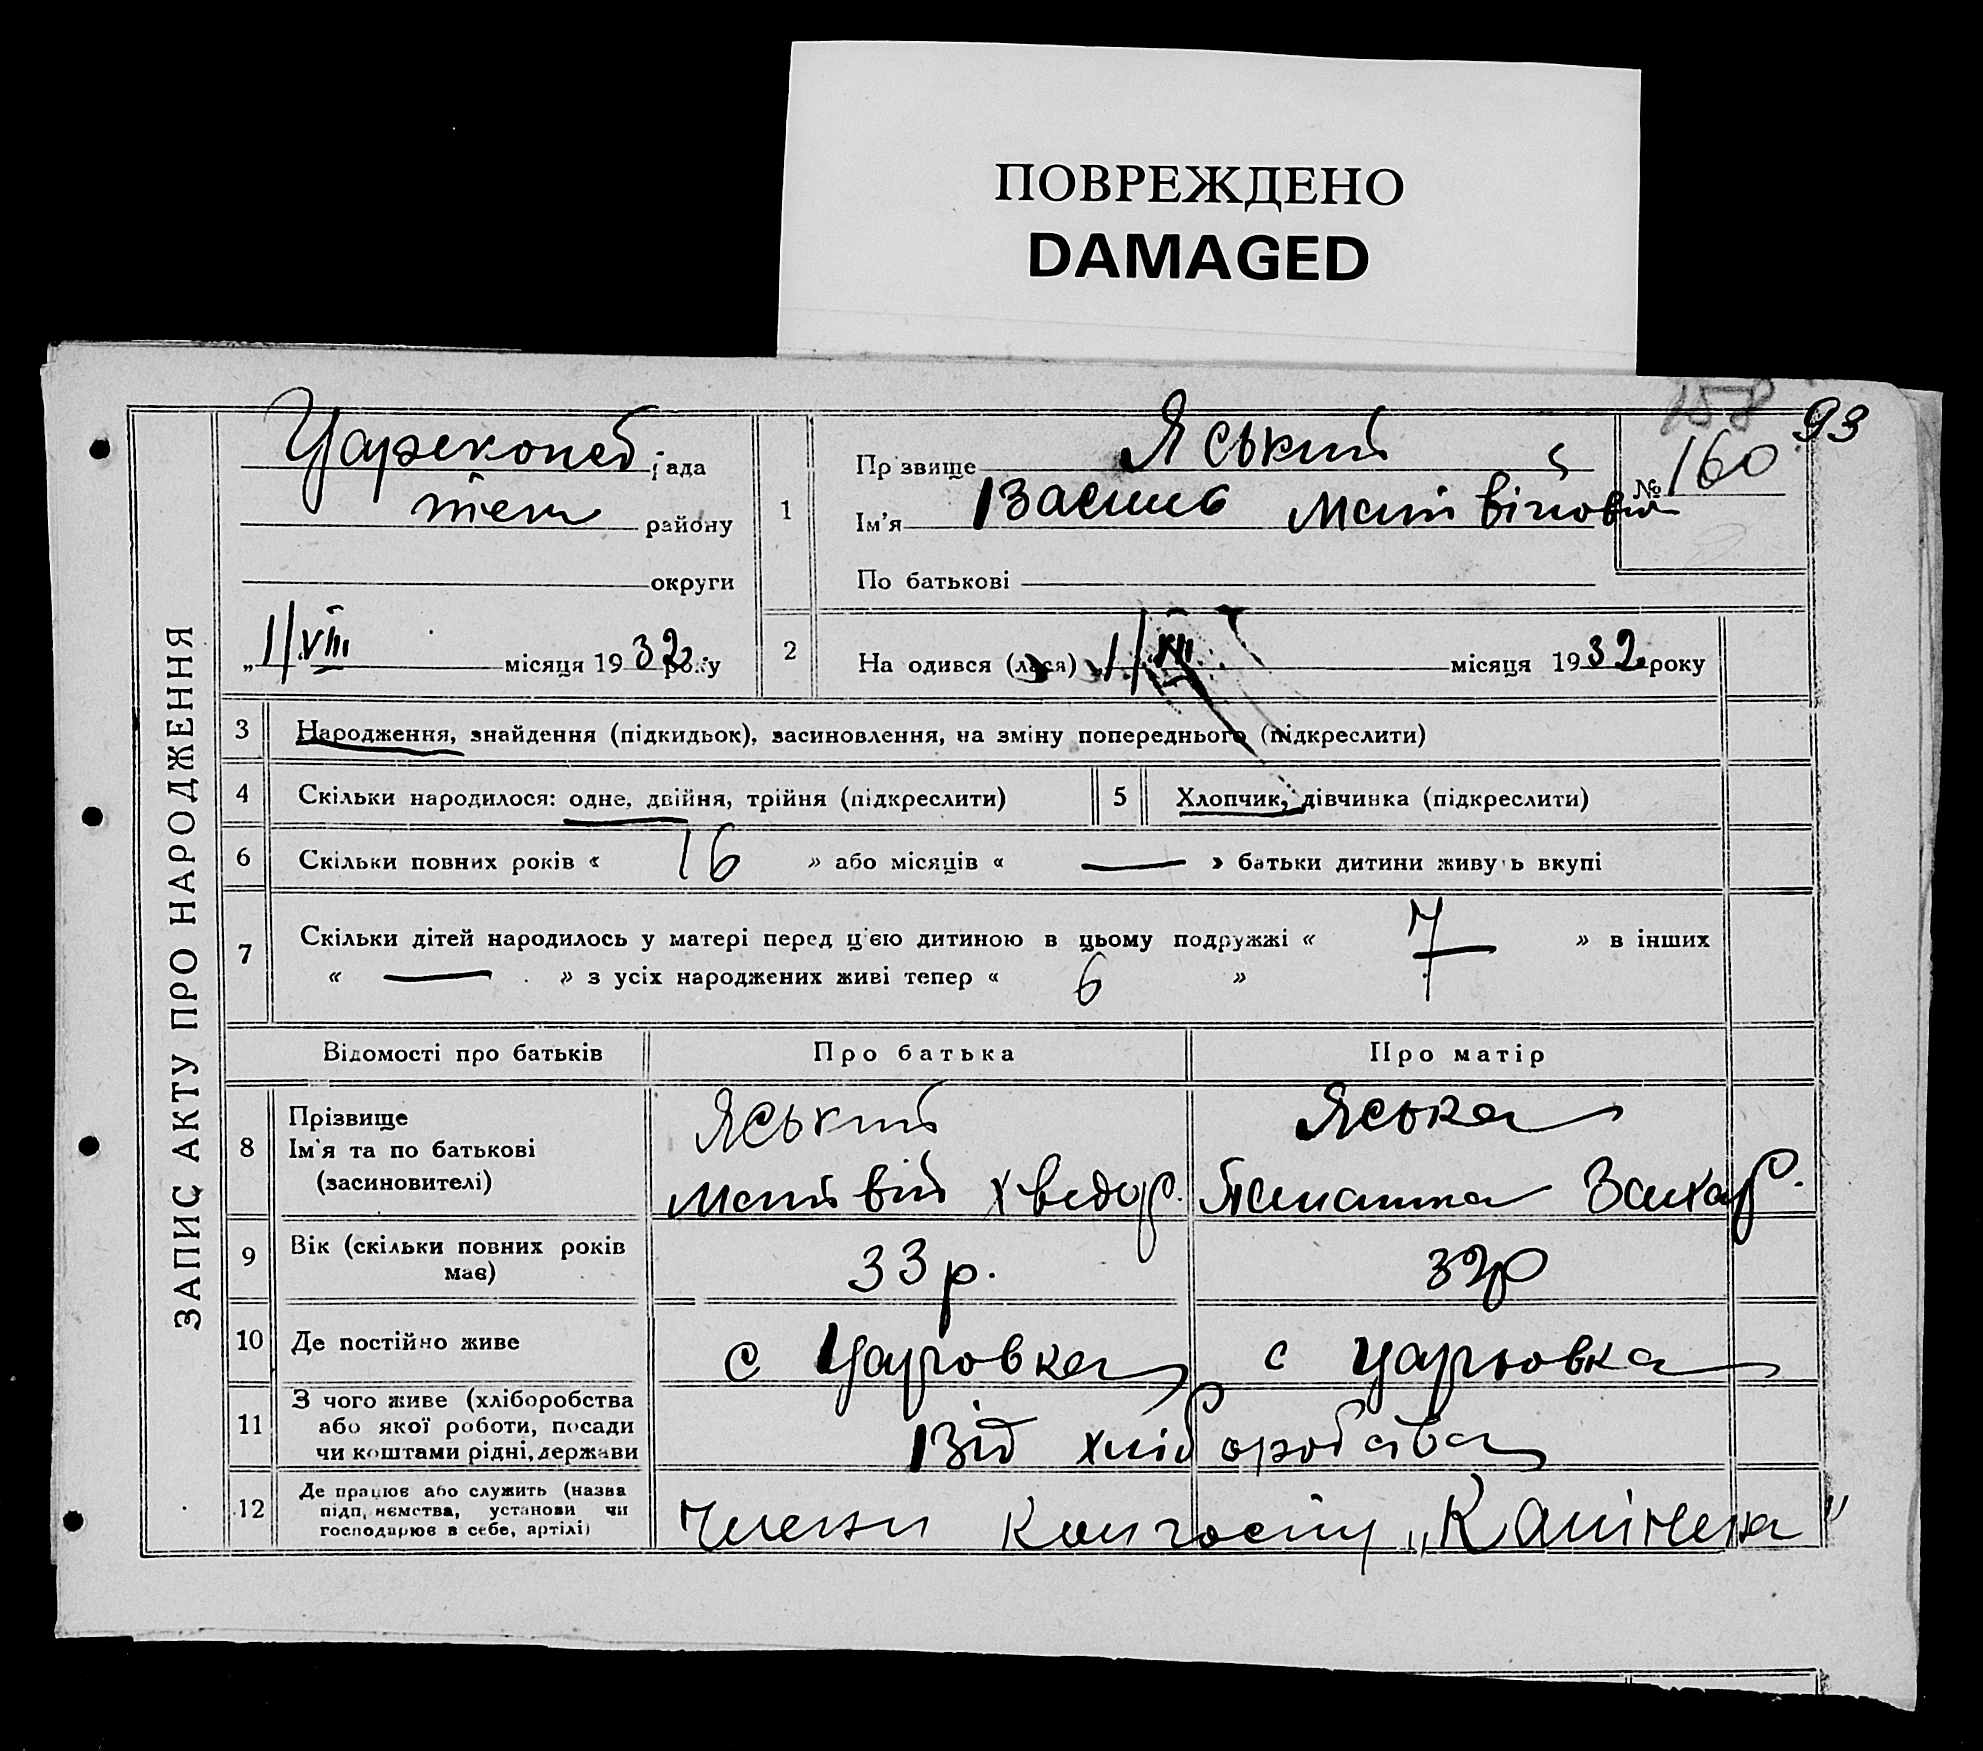 ПОВРЕЖДЕНО
DAMAGED
158 93
ЗАПИС АКТУ ПРО НАРОДЖЕННЯ
рада
району
округи
„1/VIII місяця 1932 року
1
Прізвище Яський
Ім'я Василь Матвійович
По батькові
№ 160
2
На одився (лася) „1/ місяця 1932 року
3 Народження, знайдення (підкидьок), засиновлення, на зміну попереднього (підкреслити)
4 Скільки народилося: одне, двійня, трійня (підкреслити)
5 Хлопчик, дівчинка (підкреслити)
6 Скільки повних років « 16 » або місяців « — » батьки дитини живуть вкупі
7 Скільки дітей народилось у матері перед цією дитиною в цьому подружжі « 7 » в інших
« — » з усіх народжених живі тепер « 6 »
Відомості про батьків Про батька Про матір
8 Прізвище
Ім'я та по батькові
(засиновителі)
Яський
Матвій Хведор.
Яська
Захар.
9 Вік (скільки повних років
має)
33 р. 32 р
10 Де постійно живе с Царовка с Царьовка
11 З чого живе (хліборобства
або якої роботи, посади
чи коштами рідні, держави
Від хліборобства
12 Де працює або служить (назва
підприємства, установи чи
господарює в себе, артілі)
Члени колгоспу „Калінена"